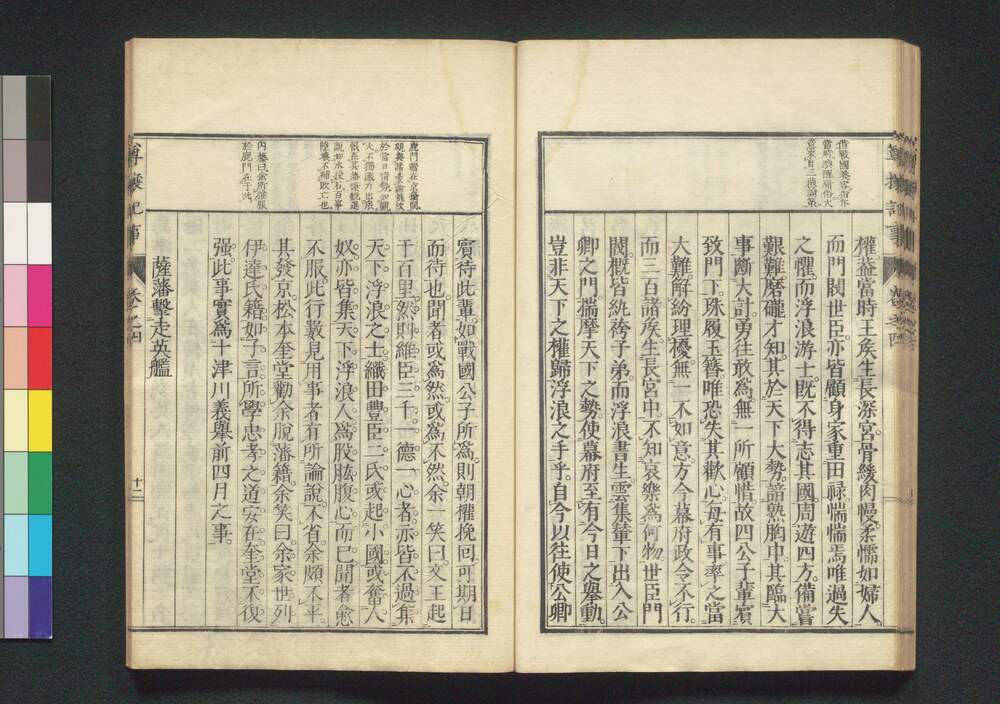 權益當時王矦生長深宮骨緩肉慢柔懦如婦人
而門閥世臣亦皆顧身家重田祿惴惴焉唯過失
之懼而浮浪游士既不得志其國周遊四方備嘗
艱難磨礲才知其於天下大勢諳熟胸中其臨大
事斷大計勇往敢為無一所顧惜故四公子輩賓
致門下珠履玉簪唯恐失其歡心毋有事率之當
大難解紛理擾無一不如意方今幕府政令不行
而三百諸矦生長宮中不知哀樂為何物世臣門
閥概皆紈袴子弟而浮浪書生雲集輦下出入公
卿之門揣摩天下之勢使幕府至有今日之舉動
豈非天下之權歸浮浪之手乎自今以往使公卿
尊攘紀事
卷之四
十二
賓待此輩如戰國公子所為則朝權挽回可期日
而待也聞者或為然或為不然余一笑曰文王起
于百里然則維臣三千一德一心者亦皆不過集
天下浮浪之士織田豐臣二氏或起小國或奮人
奴亦皆集天下浮浪人為股肱腹心而已聞者愈
不服此行數見用事者有所論說不省余頗不平
其發京松本奎堂勸余脫藩籍余笑曰余家世列
伊達氏籍如子言所學忠孝之道安在奎堂不復
強此事實為十津川義舉前四月之事
薩藩擊走英艦